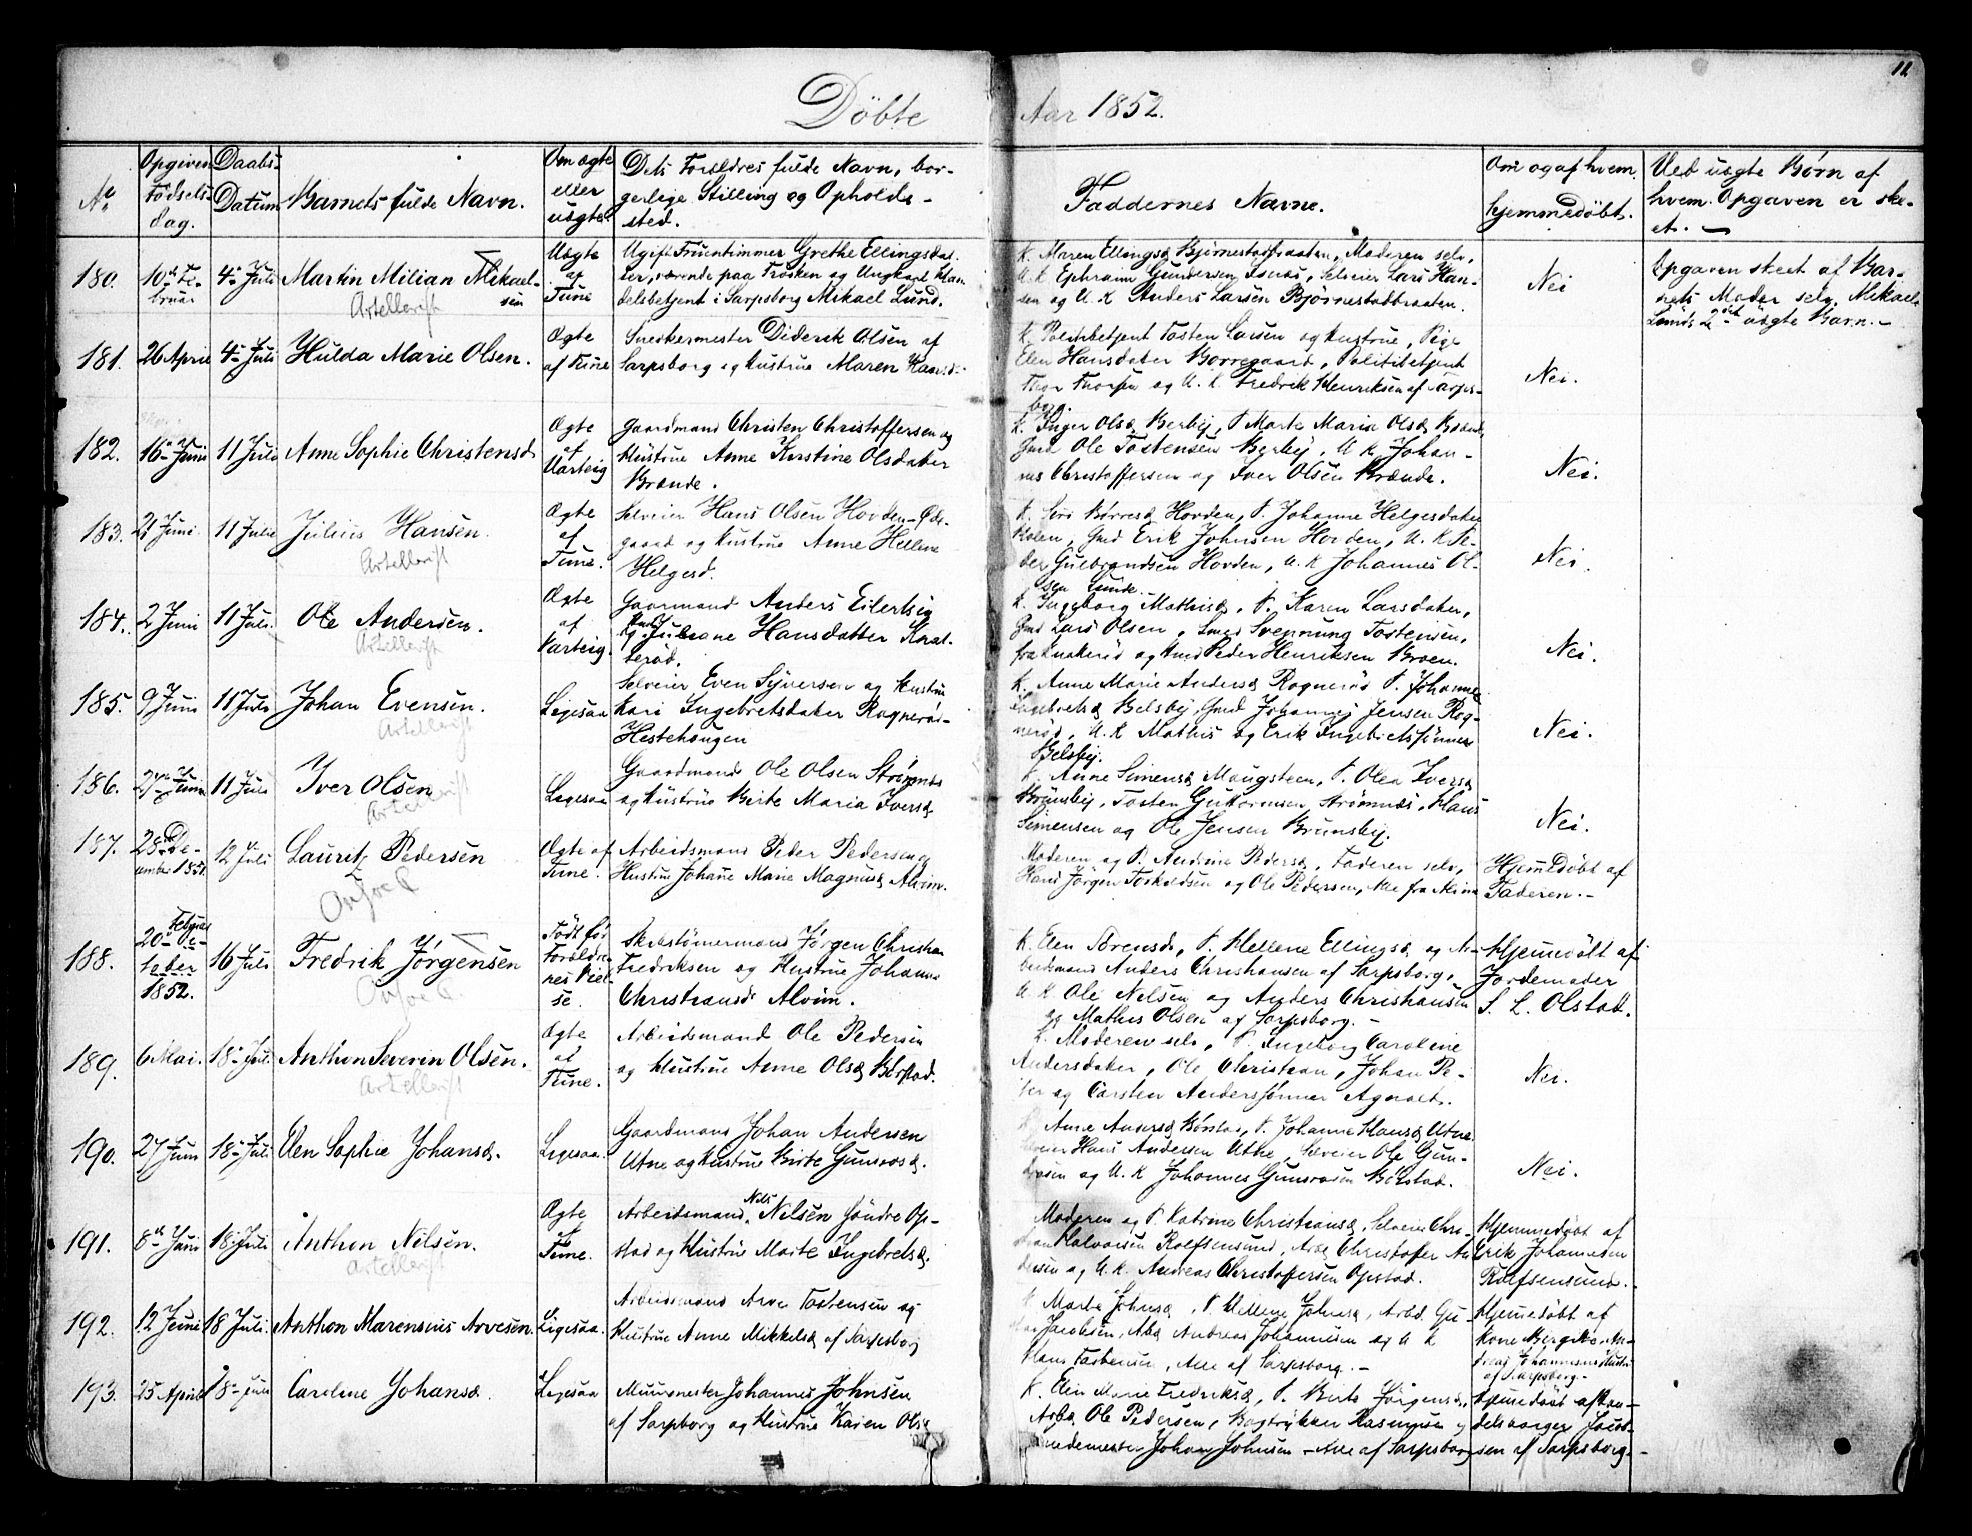 11
Döbte Aar 1852.
No Opgiven Födsels dag. Daabs Datum Barnets fulde Navn. Om ægte eller uægte Dets Forældres fulde Navn, borgerlige Stilling og Opholdssted. Faddernes Navne. Om og af hvem hjemmedöbt. Ved uægte Børn af hvem Opgaven er skeet.
180. 10de Februar 4de Juli Martin Milian Mikaelsen Uægte af Tune Ugift Fruentimmer Grethe Ellingsdatter, værende paa Trosken og Ungkarl Handelsbetjent i Sarpsborg Mikael Lund.
K. Maren Ellingsd. Bjørnestadbraaten, Moderen selv,
U. K. Ephraim Gundersen, Selveier Lars Hansen og U. K. Anders Larsen Bjørnestadbraaten.
Nei
Opgaven skeet af Barnets Moder selv. Mikael Lunds 2det uægte Barn.
Artellerist
181. 26 April 4de Juli Hulda Marie Olsen. Ægte af Tune Snedkermester Diderik Olsen af
Sarpsborg og Hustrue Maren
K. Politibetjent Tosten Larsen og Hustrue, Pige
Elen Hansdatter Borregaard, Politibetjent
Thor Thorsen og U. K. Fredrik Henriksen af Sarpsborg.
Nei.
182. 16de Juni 11 Juli Anne Sophie Christensd. Ægte af Varteig Gaardmand Christen Christoffersen og
Hustrue Anne Kirstine Olsdatter
Brænde.
K. Inger Olsd. Berby, P. Marte Maria Olsd.
Gmd Ole Tostensen Berby, U. K. Johannes Christoffersen og Iver Olsen Brænde.
Nei.
183. 21 Juni. 11 Juli Julius Hansen. Ægte af Tune. Selveier Hans Olsen Hovden-Ødegaard og Hustrue Anne Hellene
Helgesd.
Børresd. Hovden, P. Johanne Helgesdatter
Gmd Erik Johnsen Hovden, U. K. Peder Gulbrandsen Hovden, U. K. Johannes Olsen Lunde.
Nei.
Artellerist
184. 2 Juni 11 Juli. Ole Andersen. Ægte af Varteig. Gaarmand Anders Eilertsen
og Hustr. Juliane Hansdatter
K. Ingeborg Mathisd., P. Karen Larsdatter,
Gmd Lars Olsen, Svennung Tostensen,
og Gmd Peder Henriksen Broen.
Nei.
Artellerist
185. 9 Juni 11 Juli Johan Evensen. Ligesaa Selveier Even Syversen og Hustrue
Kari Ingebretsdatter Rognerød-
Hestehaugen
K. Anne Marie Andersd. Rognerød P. Johanne
Ingebretsd. Belsby, Gmd Johannes Jensen Rognerød, U. K. Mathis og Erik Ingebretssønner
Belsby.
Nei.
Artellerist
186. 27de Juni 11 Juli Iver Olsen Ligesaa Gaardmand Ole Olsen Strömnes
og Hustrue Birte Maria Iversd.
K. Anne Simensd. Maugsteen, P. Olea Iversd.
Brunsby, Tosten Guttormsen Strømnes, Hans
Simensen og Ole Jensen Brunsby.
Nei.
Artellerist
187. 28de December 1851 12 Juli Lauritz Pedersen Ægte af Tune. Arbeidsmand Peder Pedersen og
Hustrue Johane Marie Magnusd. Alvim.
Moderen og P. Andrine Pedersd., Faderen selv,
Hans Jörgen Toskildsen og Ole Pedersen, Alle fra Alvim
Hjemdöbt af
Faderen.
188. 20de Februar 1852. 16 Juli Fredrik Jørgensen Födt för Forældrenes Vielse. Skibstömermand Jørgen Christian
Fredriksen og Hustrue Johanne
Christiansd. Alvim.
K. Elen Sørensd., P. Hellene Ellingsd. og Arbeidsmand Anders Christiansen af Sarpsborg,
U. K. Ole Nelsen og Anders Christiansen
og Mathis Olsen af Sarpsborg.
Hjemedöbt af
Jordemoder
S. L. Olstad.
189. 6 Mai. 18de Juli. Anthon Severin Olsen. Ægte af Tune. Arbeidsmand Ole Pedersen
og Hustrue Anne Olsd. Børstad.
K. Moderen selv, P. Ingeborg Caroline
Andersdatter, Ole Christian, Johan Peter og Carsten Anderssønner Agnalt.
Nei.
Artellerist
190. 27 Juni 18de Juli Elen Sophie Johansd. Ligesaa. Gaardmand Johan Andersen
Utne og Hustrue Birte Gunrosd.
Anne Andersd. Børstad, P. Johanne Hansd. Utne.
Selveier Hans Andersen Uthe, Selveier Ole Gunrosen og U. K. Johannes Gunrosen Börstad.
Nei.
191. 8de Juni 18de Juli Anthon Nilsen. Ægte af Tune. Arbeidsmand Nils Nilsen Søndre Opstad og Hustrue Marte Ingebretsd.
Moderen og P. Katrine Christiansd., Selveier Christian Halvorsen Rolfsensund, Arbd. Christofer Andersen og U. K. Andreas Christoffersen Opstad.
Hjemmedöbt af
Erik Johannesen
Rolfsensund.
Artellerist
192. 12 Juni 18 Juli. Anthon Marensius Arvesen. Ligesaa. Arbeidsmand Arve Tostensen og
Hustrue Anne Mikkelsd. af Sarpsborg
Marte Johnsd., P. Hellene Johnsd., Arbd. Jacobsen, Abd. Andreas Johannesen og U. K.
Hans Torbersen, Alle af Sarpsborg.
Hjemedöbt af
Kone Birgitte, Andreas Johannesens Hustrue
af Sarpsborg.
193. 25 April 18de Juli Caroline Johansd. Ligesaa Muurmester Johannes Johnsen
af Sarpsborg og Hustrue Karen Olsd.
K. Elin Marie Fredriksd., P. Berte Jörgensd.,
Arbd. Ole Pedersen, Bogtrykker Rasmussen og
Johan Johnsen - Alle af Sarpsborg
Hjemedöbt af Handelsborger Jacobsen af Sarpsborg.